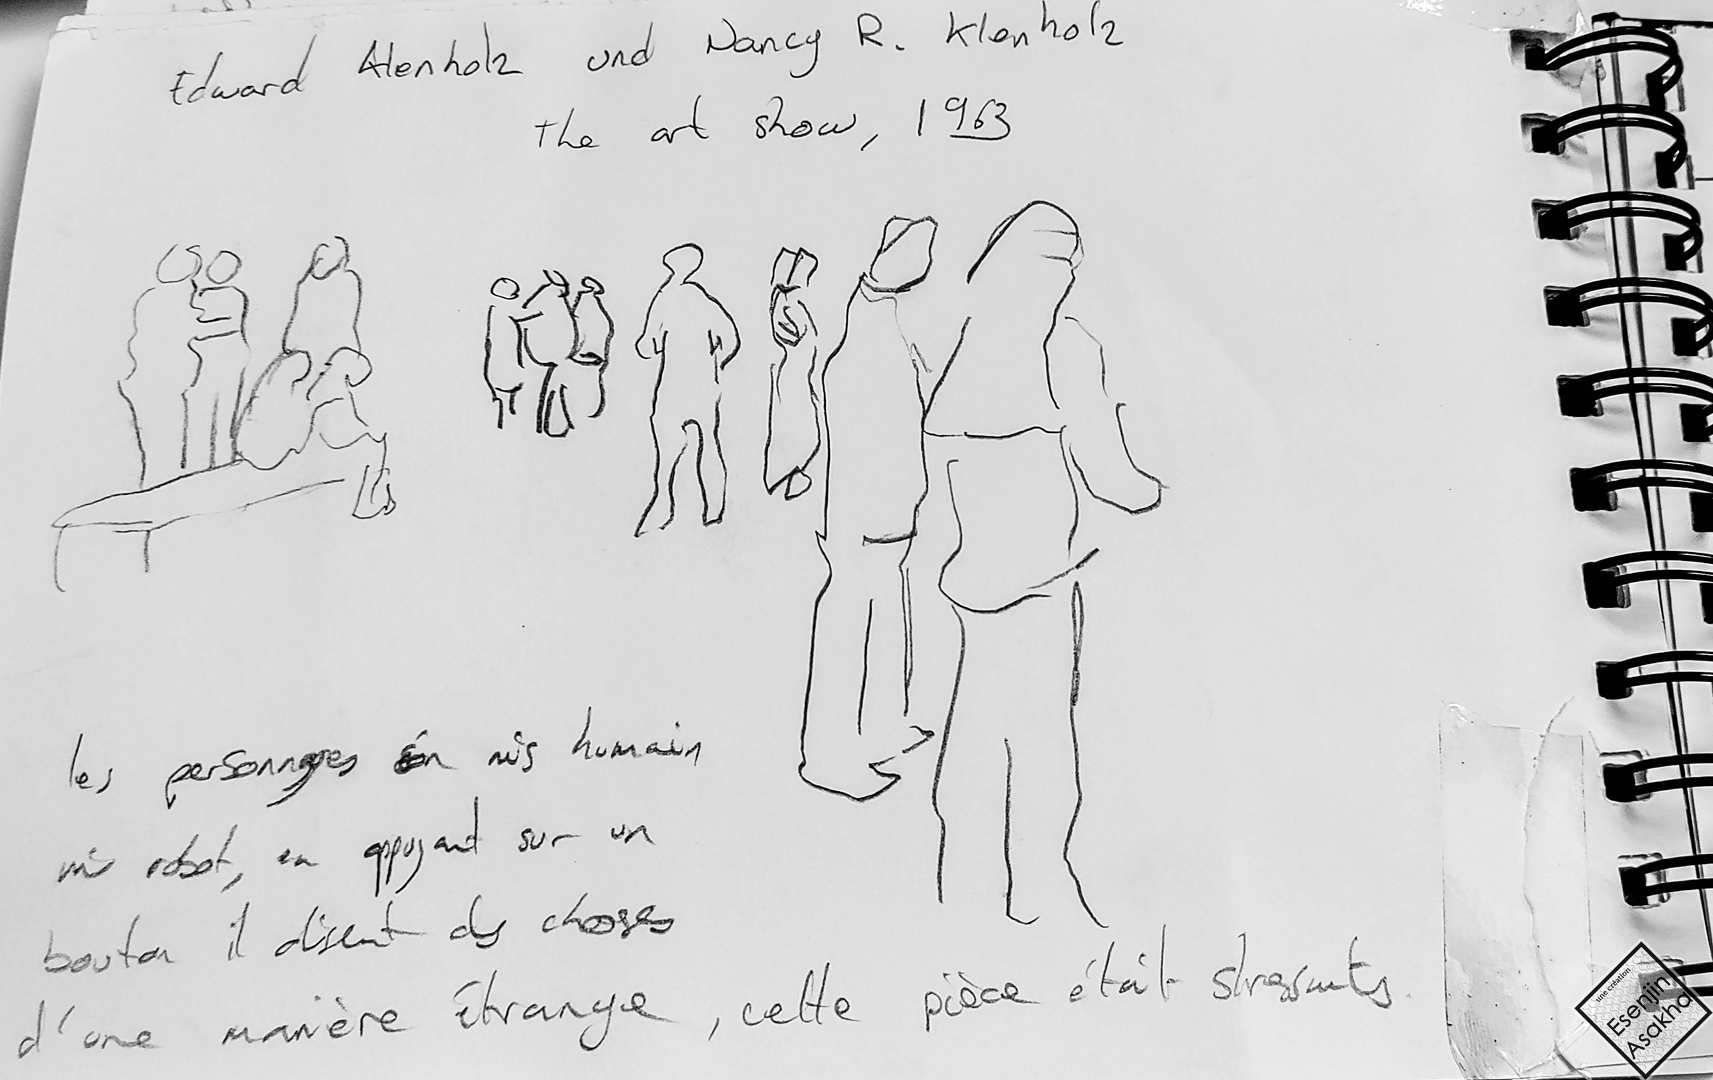 Edward Klenholz und Nancy R. Klenholz
The art show, 1963
les personnages son mis humain
mis robot, en appuyant sur un
bouton il disent des choses
d'une manière étrange, cette pièce était stressante.
une création
Esenjin
Asakha